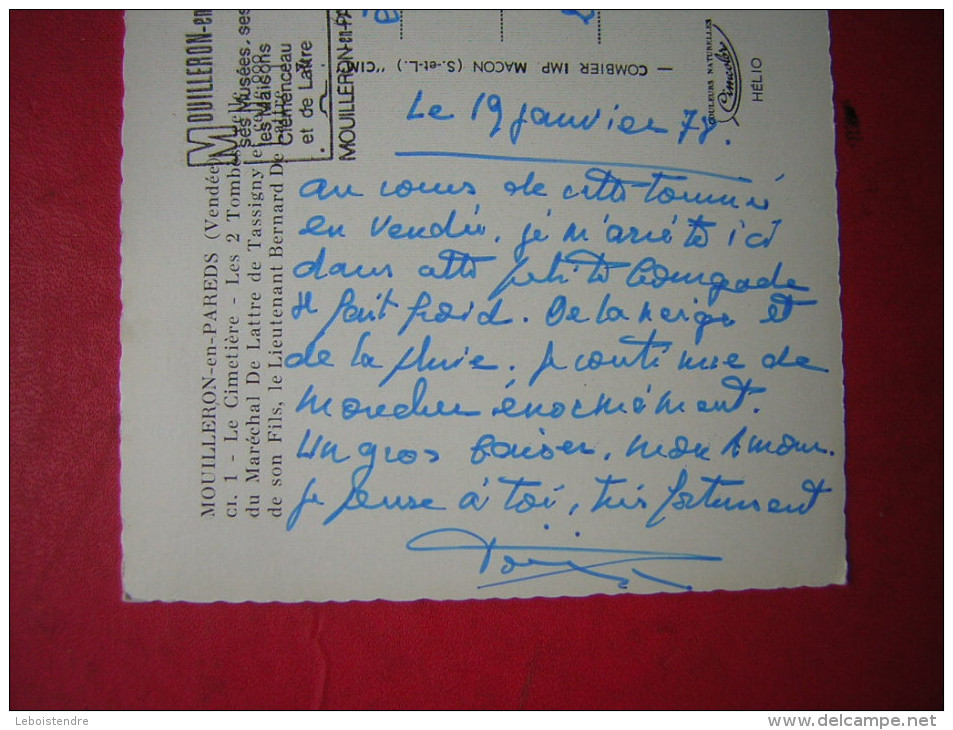 MOUILLERON-en-PAREDS (Vendée)
CI. 1 - Le Cimetière - Les 2 Tombes
du Maréchal De Lattre de Tassigny et
de son Fils, le Lieutenant Bernard De Lattre
MOUILLERON-en
ses Musées, ses
les Maisons
Clémenceau
et de Lattre
MOUILLERON-en-PA
— COMBIER IMP. MACON (S.-et-L.) "CIM
COULEURS NATURELLES
Cimcolor
HÉLIO
Le 19 janvier 78.
au cours de cette tournée
en Vendée, je m'arrête ici
dans cette petite bourgade
Il fait froid. De la neige et
de la pluie. Je continue de
marcher énormément.
Un gros baiser, mon Amour.
je pense à toi, très fortement
Leboistendre
www.delcampe.net